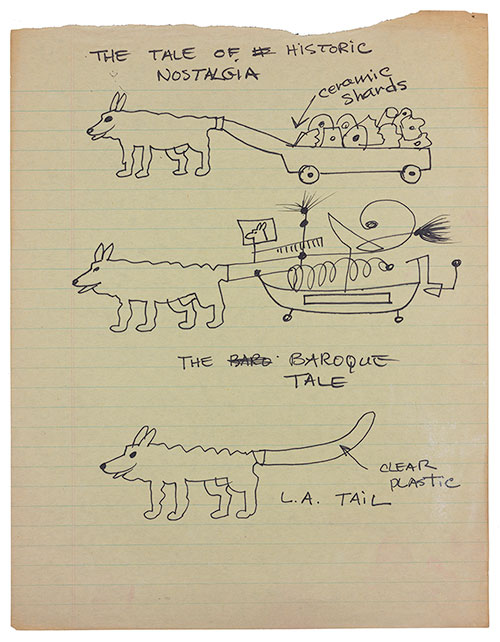 THE TALE OF HISTORIC
NOSTALGIA
ceramic
shards
THE BARO BAROQUE
TALE
CLEAR
PLASTIC
L.A. TAIL